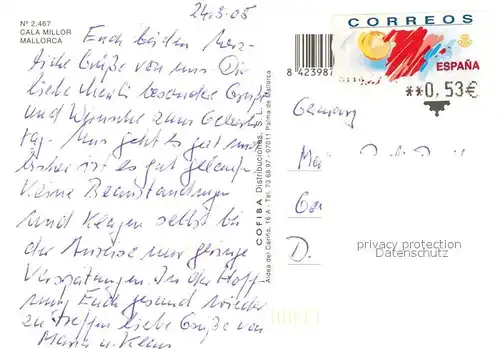 Nº 2.467
CALA MILLOR
MALLORCA
24.3.05
Euch beiden herz-
liche Grüße von uns Dir
liebe besondere Grüße
und Wünsche zum Geburts-
tag. Uns geht es gut und
bisher ist es gut gelaufen
keine Beanstandungen
und Klagen selbst bei
der Anreise nur geringe
Verspätungen. In der Hoff-
nung Euch gesund wieder
zu treffen liebe Grüße von
Maria u. Klaus
COFIBA Distribuciones, S. L.
Aldea del Cariño, 16 A - Tel. 73 68 97 - 07011 Palma de Mallorca
8 423987
CORREOS
ESPAÑA
**0,53€
Germany
D.
privacy protection
Datenschutz